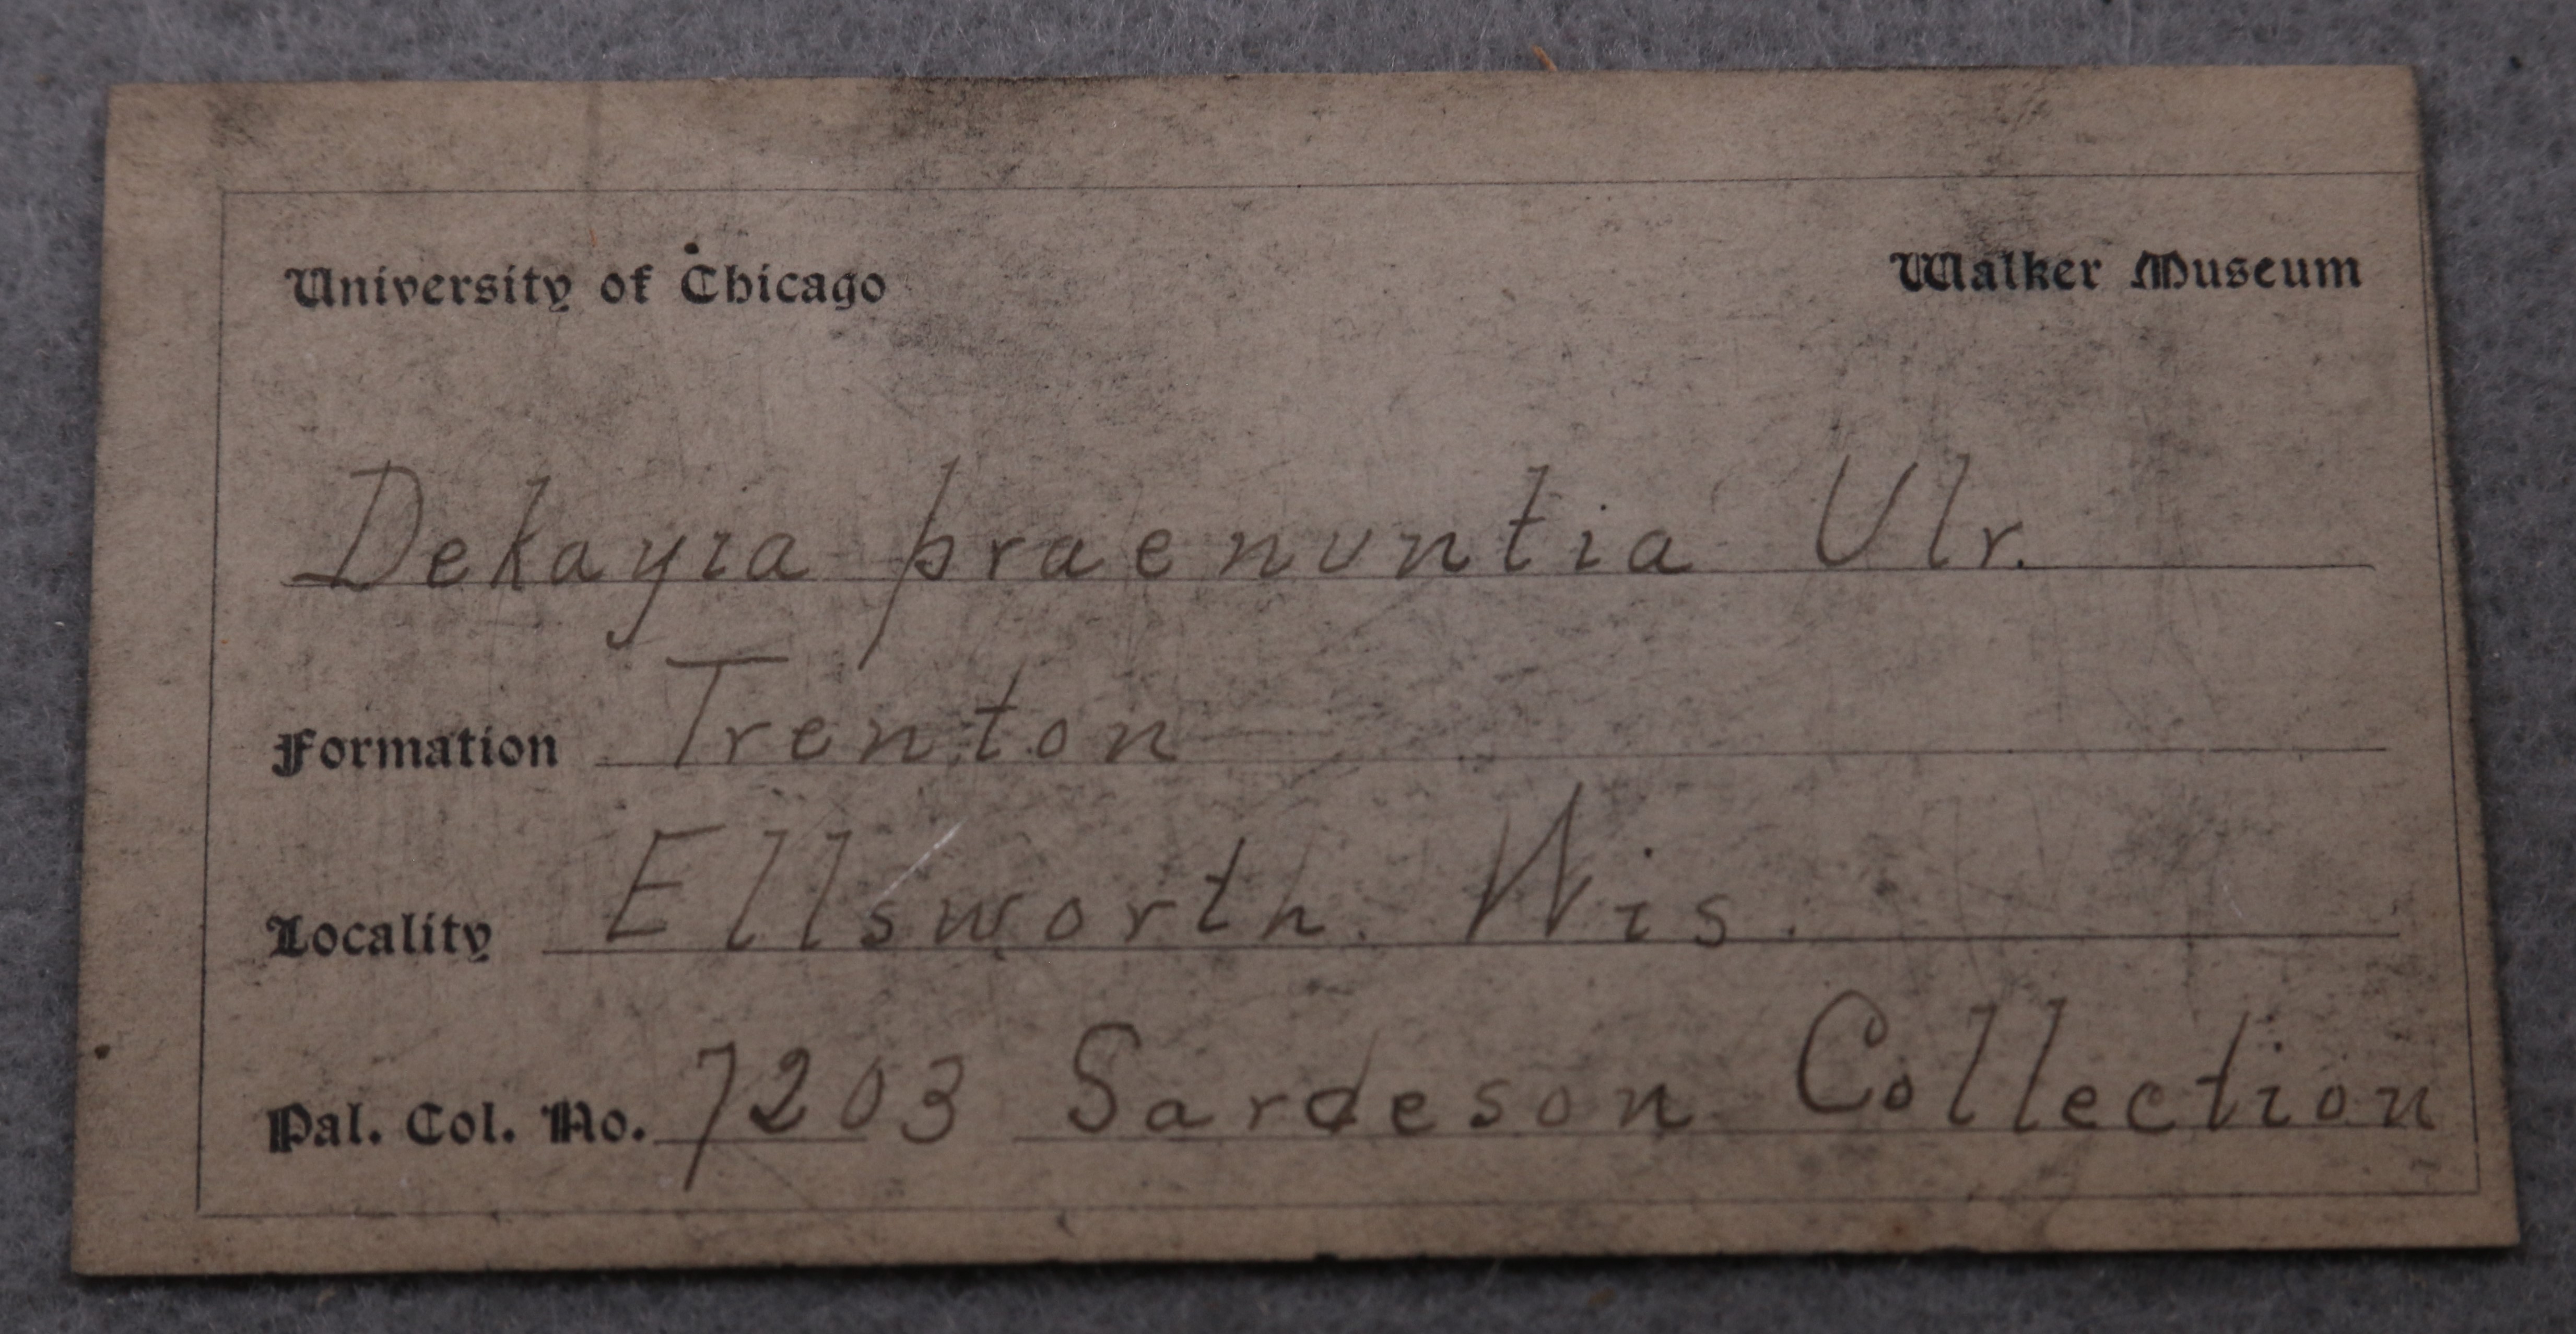 University of Chicago Walker Museum
Dekayia praenuntia Ulr.
Formation Trenton
Locality Ellsworth. Wis.
Pal. Col. No. 7203 Sardeson Collection